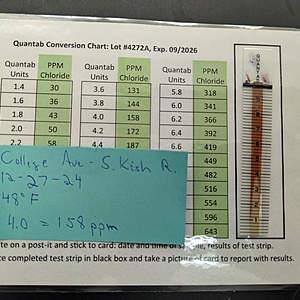 Quantab Conversion Chart: Lot #4272A, Exp. 09/2026
Quantab Units PPM Chloride Quantab Units PPM Chloride Quantab Units PPM Chloride
1.4 30 3.6 131 5.8 318
1.6 36 3.8 144 6.0 341
1.8 43 4.0 158 6.2 366
2.0 50 4.2 172 6.4 392
2.2 58 4.4 187 6.6 419
449
482
516
554
596
643
College Ave - S. Kish R.
12-27-24
48°F
4.0 = 158 ppm
te on a post-it and stick to card: date and time of sample, results of test strip.
ce completed test strip in black box and take a picture of card to report with results.
QUANTAB